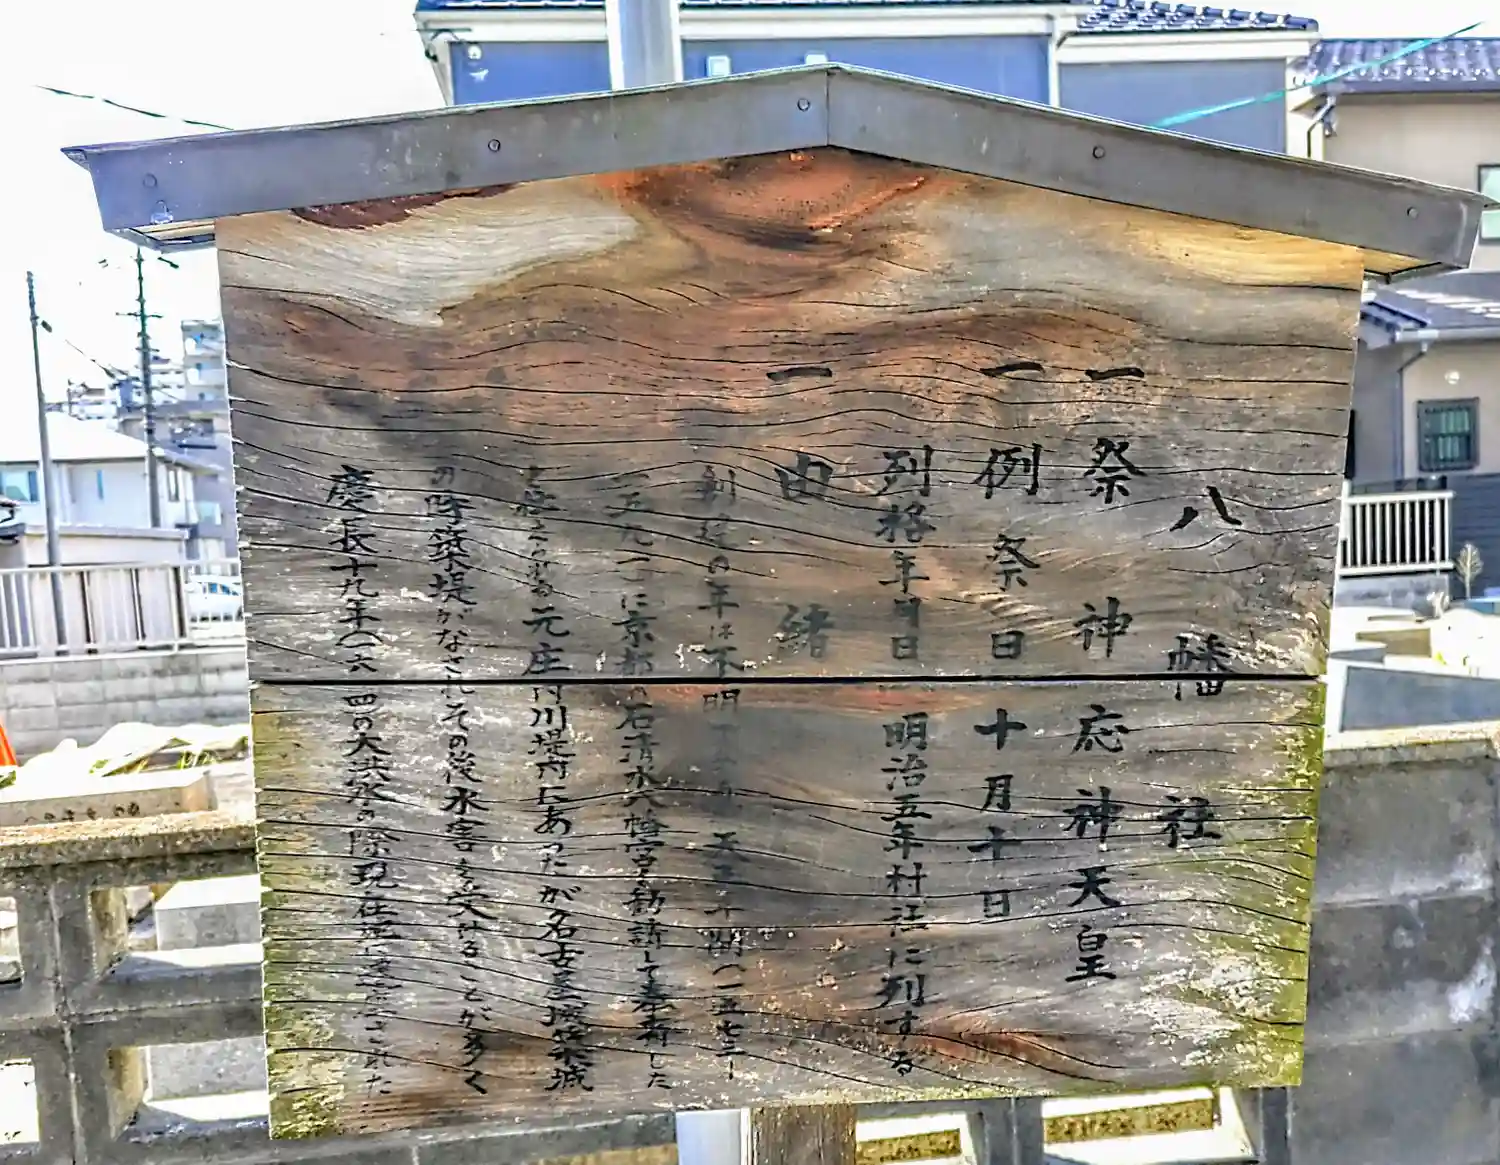 八幡社
一 祭神 応神天皇
一 例祭日 十月十日
列格年月日 明治五年村社に列する
一 由緒
創建の年は不明 年間(一五七三ー
一五九一)に京都の石清水八幡宮を勧請して奉斎した
られる元庄内川堤内にあったが名古屋城築城
の際築堤がなされその後水害を受けることが多く
慶長十九年(一六一四)の大洪水の際現在地に された